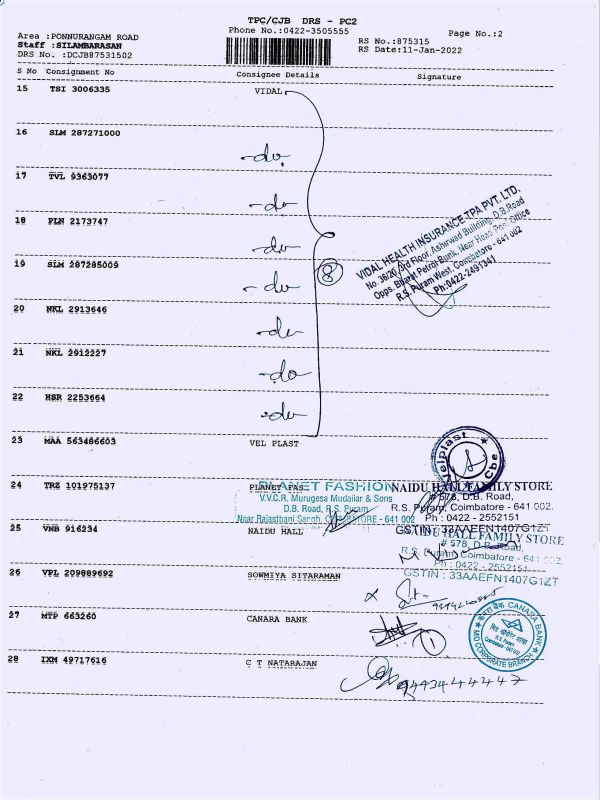 TPC/CJB DRS - PC2
Phone No.:0422-3505555
Page No.:2
Area :PONNURANGAM ROAD
Staff :SILAMBARASAN
DRS No. :DCJB87531502
RS No.:875315
RS Date:11-Jan-2022
S No Consignment No Consignee Details Signature
15 TSI 3006335 VIDAL
16 SLM 287271000
-do-
17 TVL 9363077
-do-
18 PLN 2173747
-do-
19 SLM 287285009
-do-
20 NKL 2913646
-do-
21 NKL 2912227
-do-
22 HSR 2253664
-do-
8
VIDAL HEALTH INSURANCE TPA PVT. LTD.
No. 36/20, 3rd Floor, Ashirwad Building, D.B.Road
Opps. Bharat Petrol Bunk, Near Head Post Office
R.S. Puram West, Coimbatore - 641 002
Ph:0422-2491341
23 MAA 563486603 VEL PLAST
Velplast
Cbe
24 TRZ 101975137 PLANET FAS
PLANET FASHION
V.V.C.R. Murugesa Mudaliar & Sons
D.B. Road, R.S. Puram,
COIMBATORE - 641 002
NAIDU HALL FAMILY STORE
# 578, D.B. Road,
R.S. Puram, Coimbatore - 641 002.
Ph : 0422 - 2552151
GSTIN : 33AAEFN1407G1ZT
25 VNB 916234 NAIDU HALL
NAIDU HALL FAMILY STORE
# 578, D.B. Road,
R.S. Puram, Coimbatore - 641 002.
Ph : 0422 - 2552151
GSTIN : 33AAEFN1407G1ZT
26 VPL 209889692 SOWMIYA SITARAMAN
27 MTP 663260 CANARA BANK
1
केनरा बैंक CANARA BANK
R.S. Puram
Coimbatore - 641 002
MID CORPORATE BRANCH
28 IXM 49717616 C T NATARAJAN
9443444447